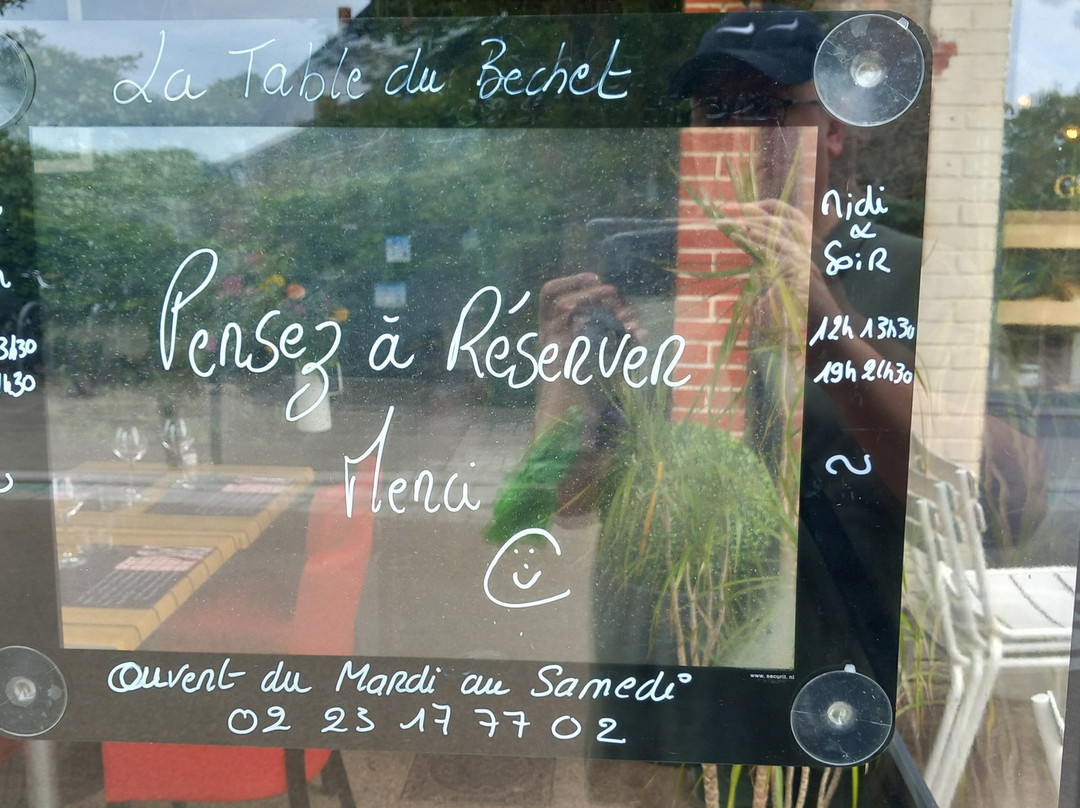 La Table du Bechet
Midi
&
Soir
Pensez à Réserver
12h 13h30
19h 21h30
3h30
1h30
Merci
Ouvert du Mardi au Samedi
www.securit.nl
02 23 17 77 02